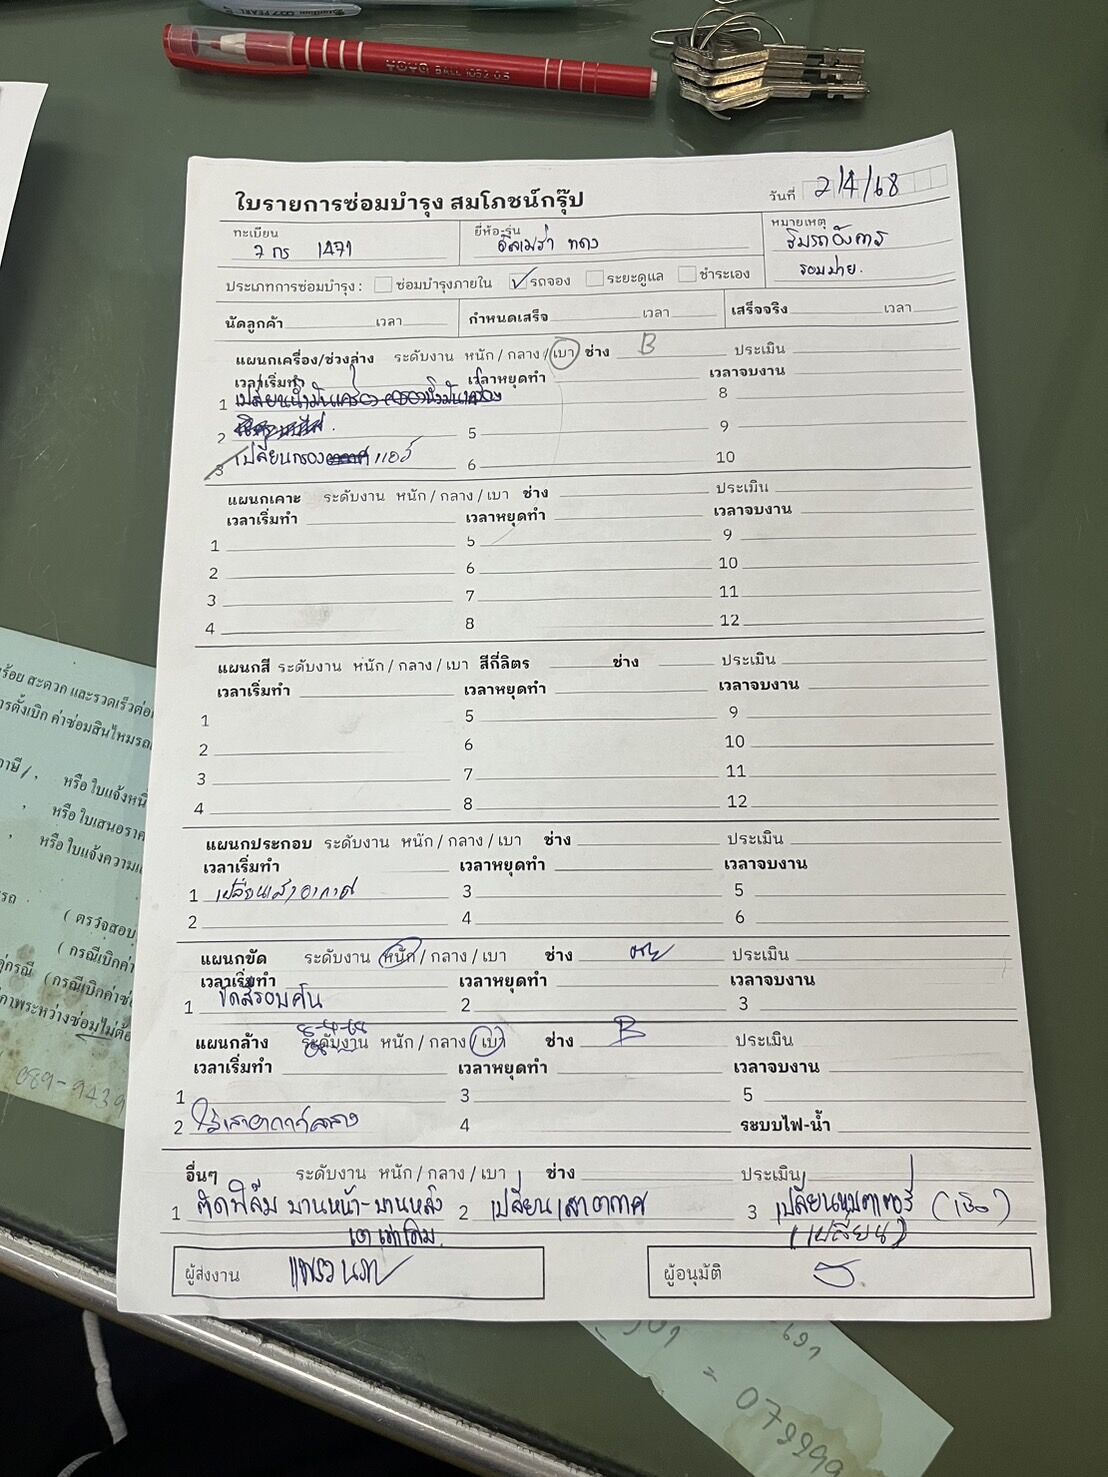 YOYA BALL 1052 0.5
ใบรายการซ่อมบำรุง สมโภชน์กรุ๊ป
วันที่ 2/4/68
ทะเบียน
7 กร 1471
ยี่ห้อ-รุ่น
อัลเมร่า ทดง
หมายเหตุ
ริมรถอังคาร
รอมม่าย.
ประเภทการซ่อมบำรุง : ซ่อมบำรุงภายใน รถจอง ระยะดูแล ชำระเอง
นัดลูกค้า เวลา กำหนดเสร็จ เวลา เสร็จจริง เวลา
แผนกเครื่อง/ช่วงล่าง ระดับงาน หนัก / กลาง / เบา ช่าง B ประเมิน
เวลาเริ่มทำ เวลาหยุดทำ เวลาจบงาน
1 เปลี่ยนน้ำมันเครื่อง กรองน้ำมันเครื่อง 8
2 5 9
3 เปลี่ยนกรอง แอร์ 6 10
แผนกเคาะ ระดับงาน หนัก / กลาง / เบา ช่าง ประเมิน
เวลาเริ่มทำ เวลาหยุดทำ เวลาจบงาน
1 5 9
2 6 10
3 7 11
4 8 12
แผนกสี ระดับงาน หนัก / กลาง / เบา สีกี่ลิตร ช่าง ประเมิน
เวลาเริ่มทำ เวลาหยุดทำ เวลาจบงาน
1 5 9
2 6 10
3 7 11
4 8 12
แผนกประกอบ ระดับงาน หนัก / กลาง / เบา ช่าง ประเมิน
เวลาเริ่มทำ เวลาหยุดทำ เวลาจบงาน
1 เปลี่ยนเสาอากาศ 3 5
2 4 6
แผนกขัด ระดับงาน หนัก / กลาง / เบา ช่าง ประเมิน
เวลาเริ่มทำ เวลาหยุดทำ เวลาจบงาน
1 ขัดสีรอบคัน 2 3
แผนกล้าง ระดับงาน หนัก / กลาง / เบา ช่าง B ประเมิน
เวลาเริ่มทำ เวลาหยุดทำ เวลาจบงาน
1 3 5
2 4 ระบบไฟ-น้ำ
อื่นๆ ระดับงาน หนัก / กลาง / เบา ช่าง ประเมิน
1 ติดฟิล์ม บานหน้า-บานหลัง 2 เปลี่ยนเสาอากาศ 3
(เปลี่ยน)
ผู้ส่งงาน แพรวนภา
ผู้อนุมัติ
ร้อย สะดวก และรวดเร็วต่อ
ารตั้งเบิก ค่าซ่อมสินไหมรถ
หรือ ใบแจ้งหนี้
หรือ ใบเสนอราค
หรือ ใบแจ้งความ
( ตรวจสอบ
( กรณีเบิกค่า
ู่กรณี (กรณีเบิกค่าซ่
าพระหว่างซ่อมไม่ต้อ
089-9439
= 079999